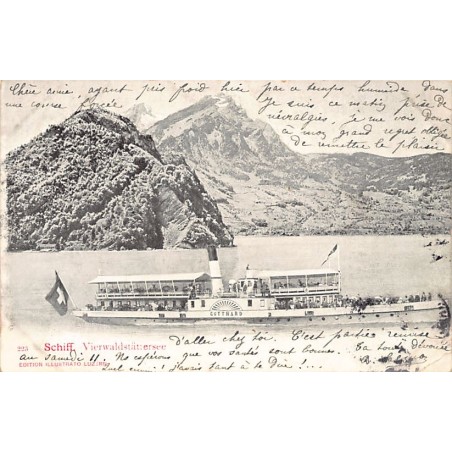 Chère amie, ayant pris froid hier par ce temps humide dans
une course forcée
Je suis ce matin prise de
névralgies. Je me vois donc
à mon grand regret obligée
de remettre le plaisir
GOTTHARD
d'aller chez toi. C'est partie remise
225 Schiff. Vierwaldstättersee
au samedi 11. Ne espérons que vos santés sont bonnes. Ta toute dévouée
EDITION ILLUSTRATO LUZERN
amie